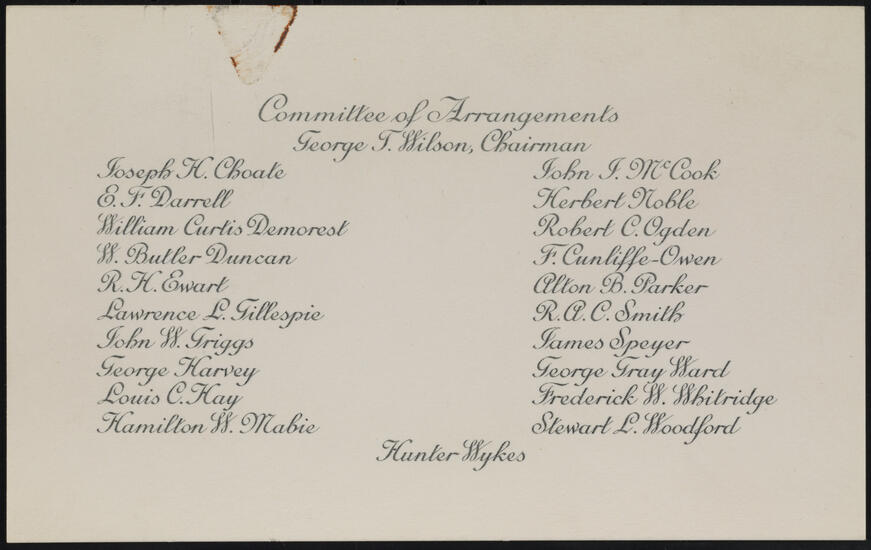 Committee of Arrangements
George T. Wilson, Chairman
Joseph H. Choate
E. F. Darrell
William Curtis Demorest
W. Butler Duncan
R. H. Ewart
Lawrence L. Gillespie
John W. Griggs
George Harvey
Louis C. Hay
Hamilton W. Mabie
John J. McCook
Herbert Noble
Robert C. Ogden
F. Cunliffe-Owen
Alton B. Parker
R. A. C. Smith
James Speyer
George Gray Ward
Frederick W. Whitridge
Stewart L. Woodford
Hunter Wykes